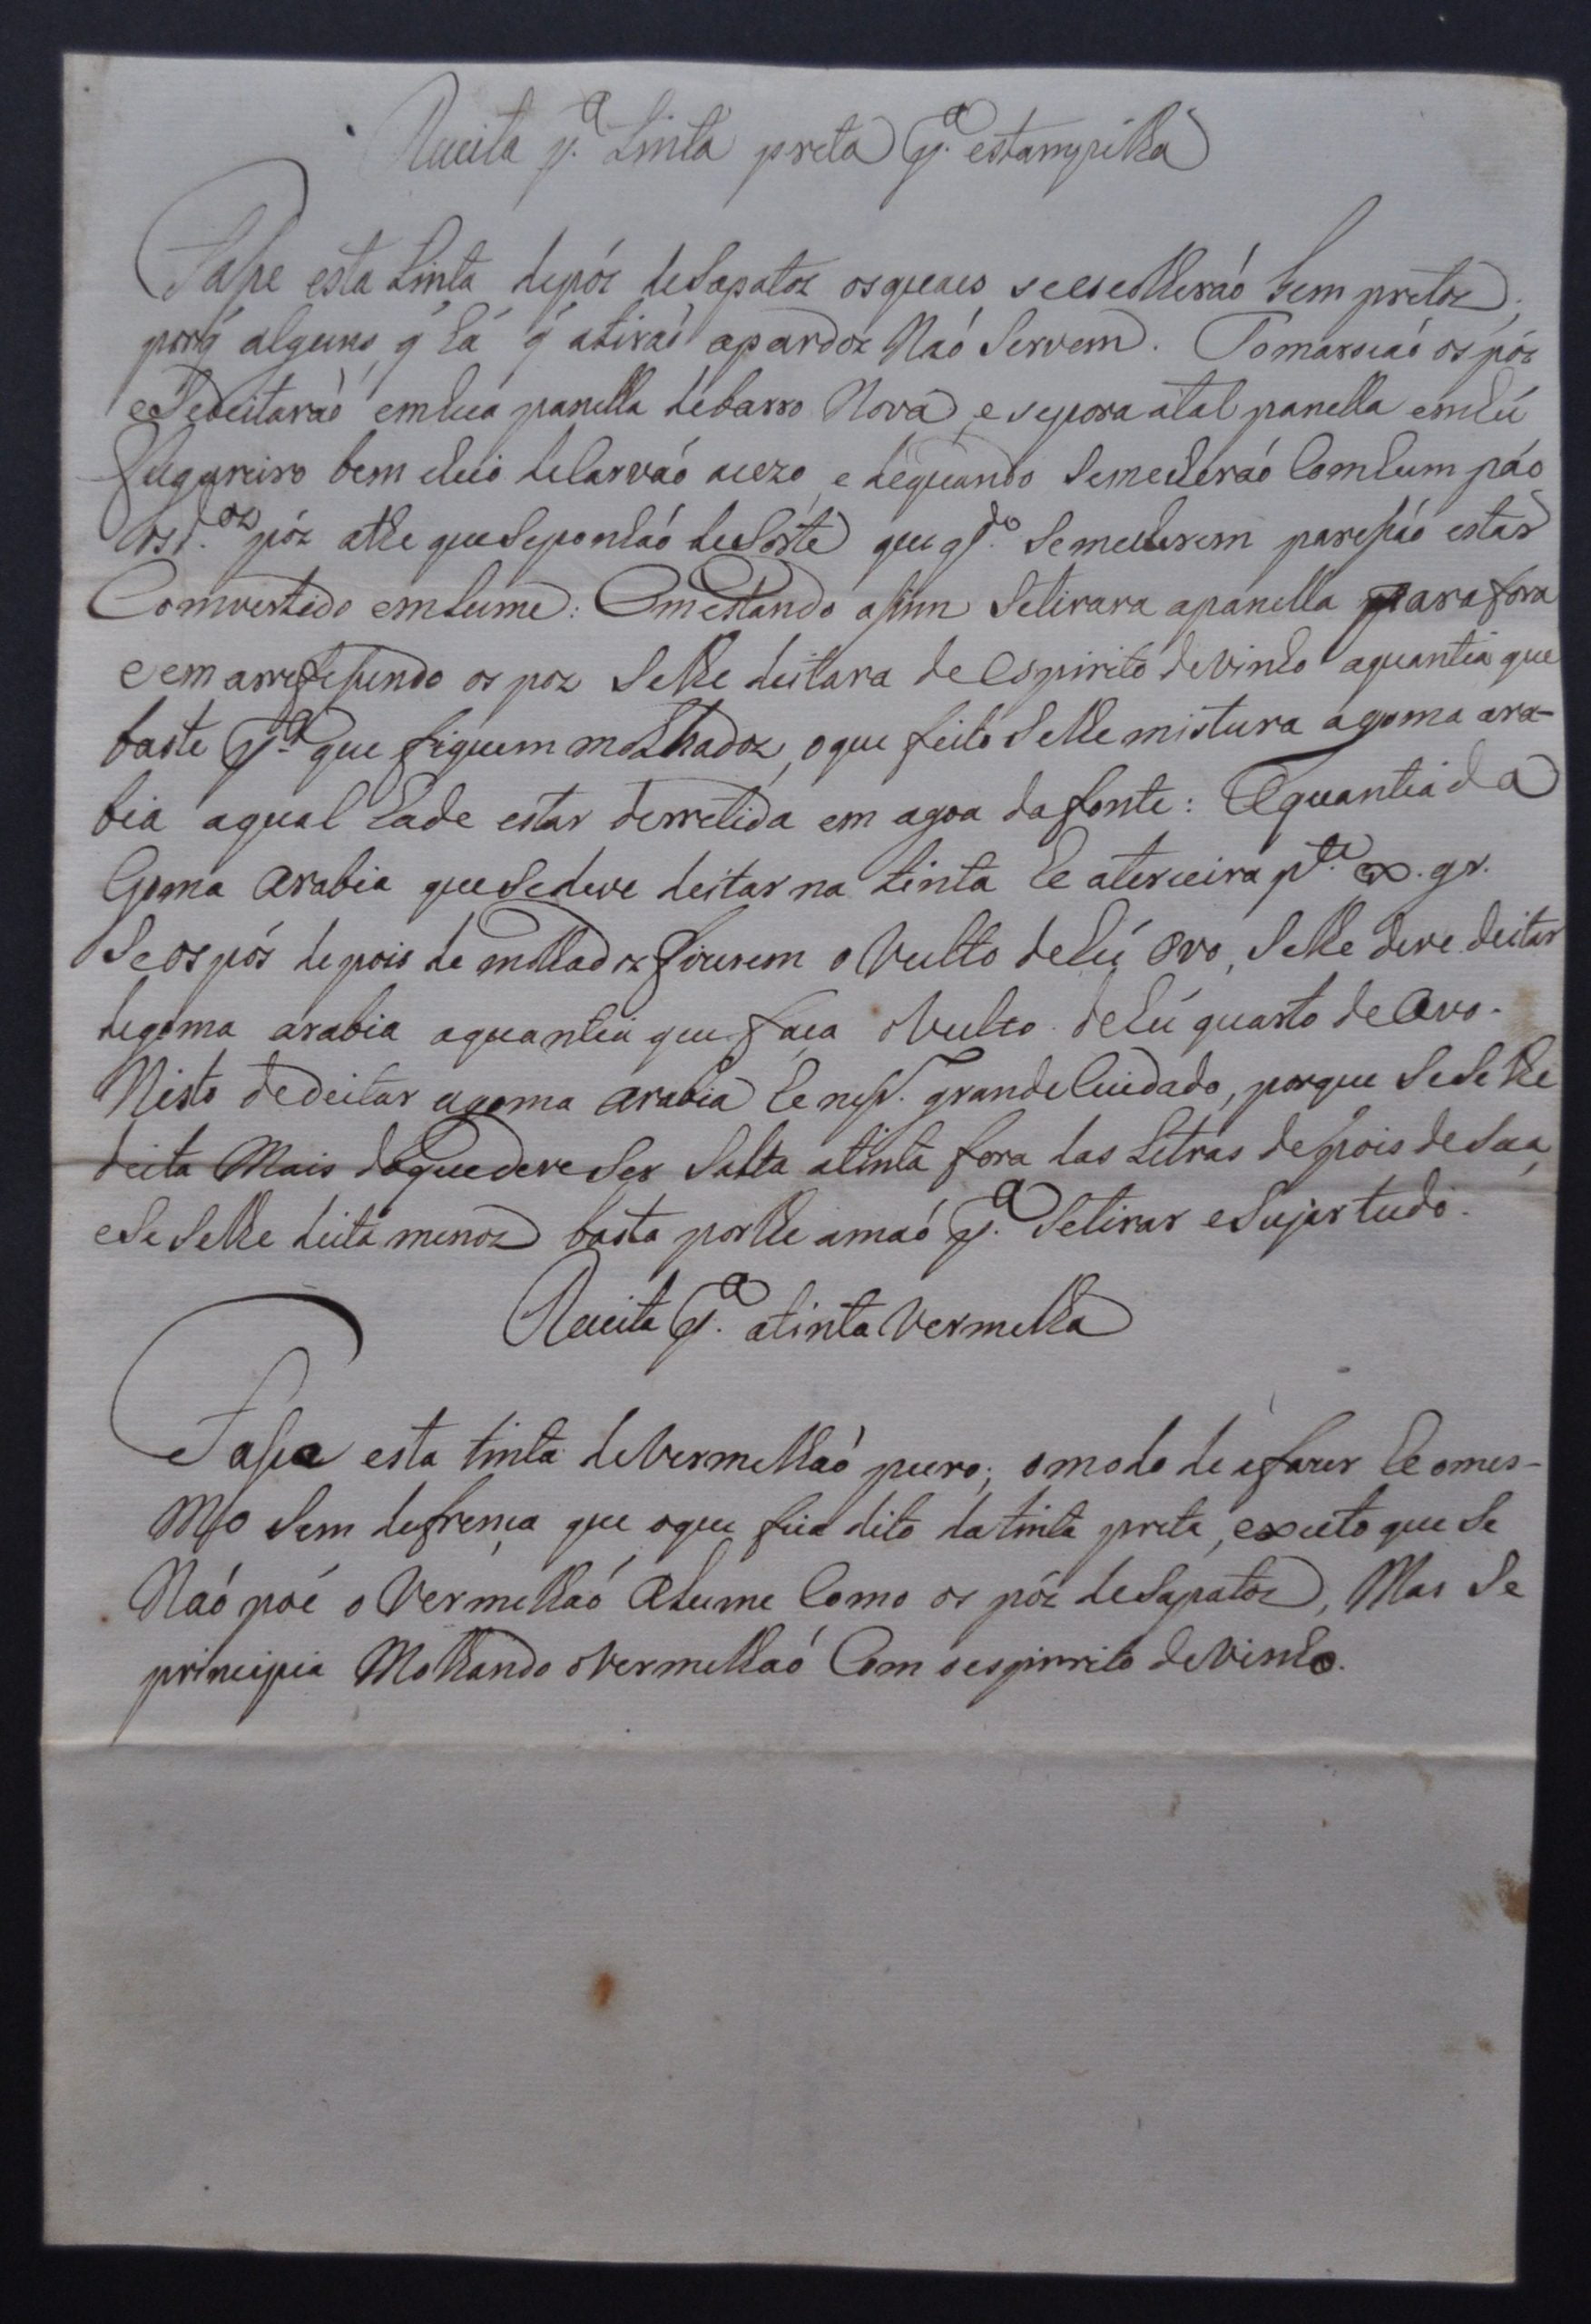 Receita p.ª tinta preta p.ª estampilha
Fasse esta tinta de pós de Sapatos os quaes se escolheraó bem pretos,
porq̃ alguns q̃ há q̃ atiraó apardos Naó Servem. Tomarseaó os pós
e Sedeitaráo em hua panella de barro Nova, e sepora a tal panella em hú
fugareiro bem cheio de Carvaó acezo, e dequando Semecheraó Com hum páo
os d.os póz athe que Seponhaó de Sorte que q.do Semecherem paressáo estar
Comvertido em Lume: Em estando assim Setirara a panella para fora
e em arrefessendo os poz Selhe deitara de espirito de vinho aquantia que
baste p.ª que fiquem molhadoz, o que feito Selhe mistura a goma ara-
bia a qual hade estar derretida em agoa da fonte: A quantia da
Goma arabia que Sedeve deitar na tinta he a terceira p.te ex. gr.
Se os pós depois de molhados fizerem o Vulto de hú Ovo, Selhe deve deitar
de goma arabia aquantia que faça o Vulto de hú quarto de Ovo.
Nisto de deitar a goma arabia he ness. grande Cuidado, porque Se Selhe
deita Mais do que deve Ser Salta a tinta fora das Letras depois de Seca,
e Se Selhe deita menos basta porlhe a maó p.ª Setirar e Sujar tudo.
Receita p.ª a tinta Vermelha
Fassa esta tinta de Vermelhaó puro; o modo de a fazer he o mes-
Mo Sem defrença que o que fica dito da tinta preta, exceto que Se
Naó poé o Vermelhaó a Lume Como os póz de Sapatos, Mas Se
principia Molhando o Vermelhaó Com o espirrito de Vinho.